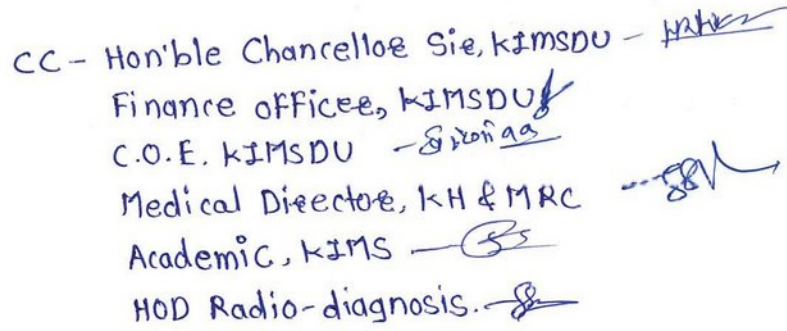 CC- Hon'ble Chancellor Sir, KIMSDU -
Finance officer, KIMSDU
C.O.E. KIMSDU -
Medical Director, KH & MRC
Academic, KIMS -
HOD Radio-diagnosis. -